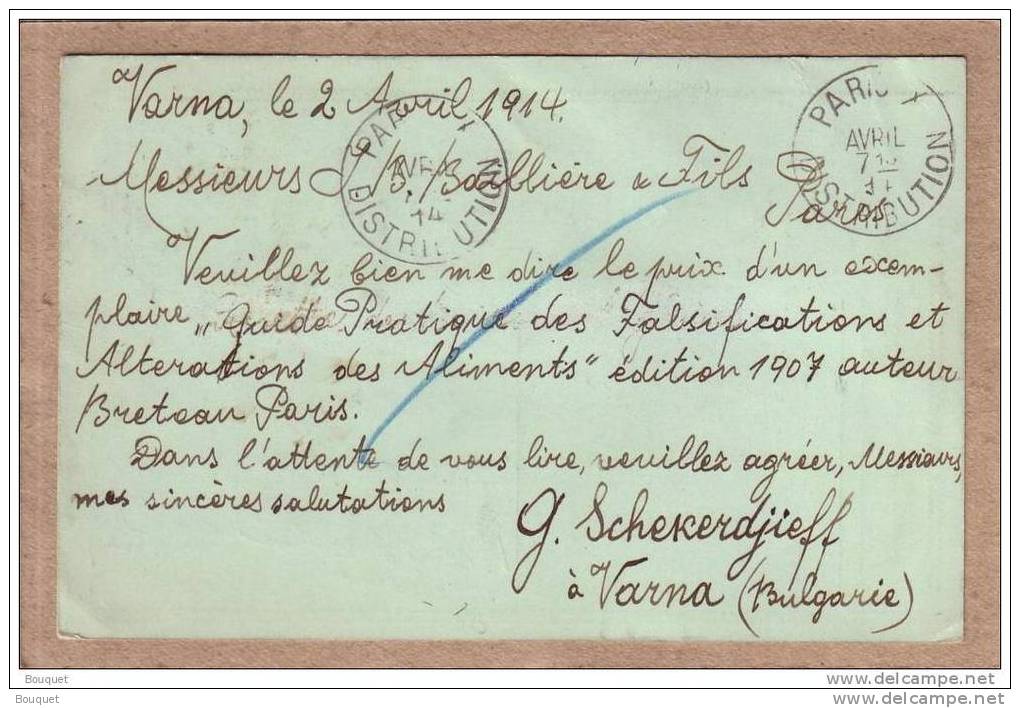 Varna, le 2 Avril 1914.
Messieurs J/B. Baillière & Fils
Paris
Veuillez bien me dire le prix d'un exem-
plaire „Guide Pratique des Falsifications et
Alterations des Aliments" édition 1907 auteur
Breteau Paris.
Dans l'attente de vous lire, veuillez agréer, Messieurs,
mes sincères salutations
G. Schekerdjieff
à Varna (Bulgarie)
PARIS
AVRIL
14
DISTRIBUTION
PARIS X
AVRIL
DISTRIBUTION
Bouquet
www.delcampe.net
Bouquet
www.delcampe.net